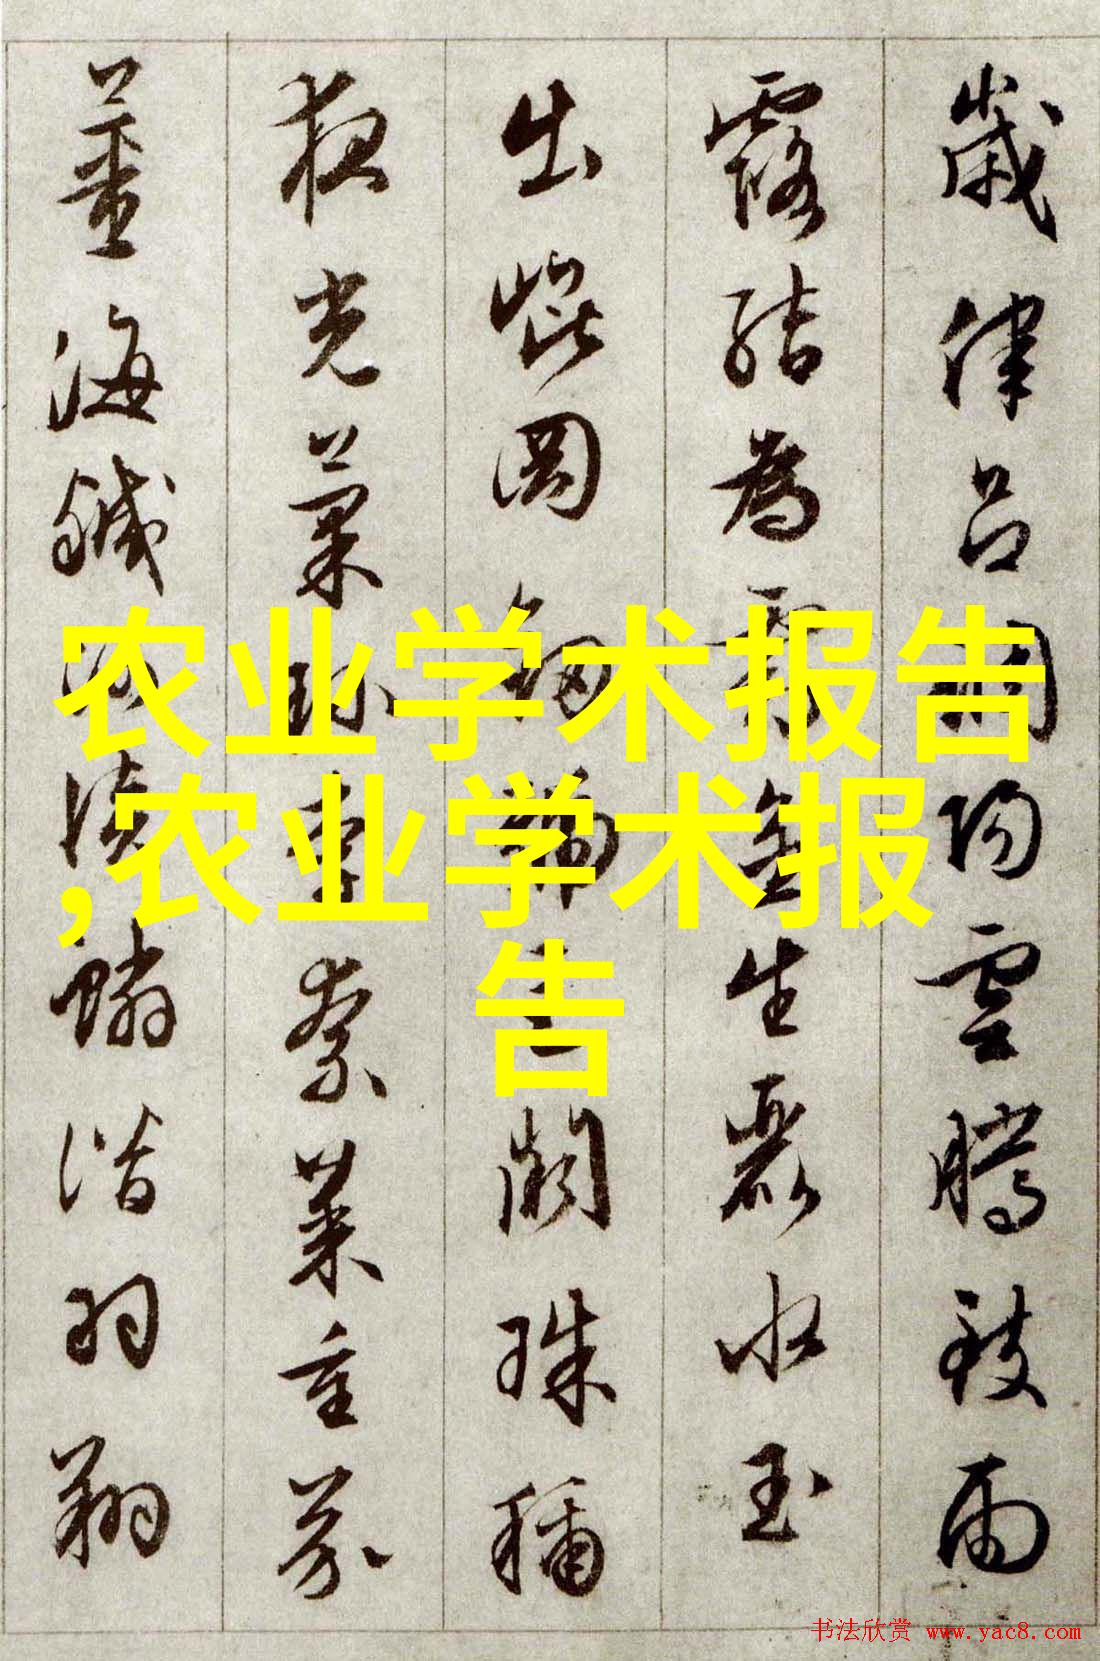 歲律呂調陽雲騰致雨
露結為霜金生麗水玉
出崐岡劍號巨闕珠稱
夜光菓珍李柰菜重芥
薑海鹹河淡鱗潛羽翔
农业学术报告
,农业学术报
告
书法欣赏 www.yac8.com